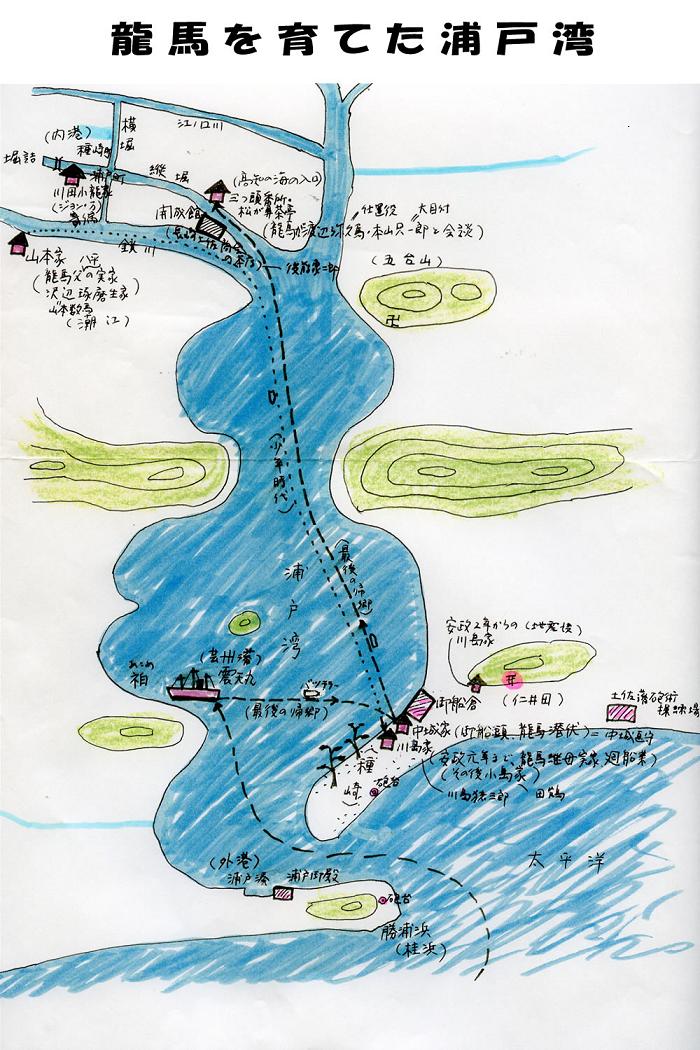 龍馬を育てた浦戸湾
江ノ口川
横堀
(内港)
種崎町
堀詰
浦戸町
縦堀
川田小龍家
(高知の海の入口)
三ツ頭番所・
松が鼻茶亭
開成館
仕置役
大目付
(龍馬が渡辺弥久馬・本山只一郎と会談)
後藤象二郎
鏡川
山本家
(龍馬父の実家)
(沢辺琢磨生家)
山本数馬
(潮江)
(五台山)
卍
(少年時代)
(最後の帰郷)
浦戸湾
安政2年からの(地震後)
川島家
(仁井田)
(芸州藩)
震天丸
袙
(最後の帰郷)
御船倉
土佐藩砲術
操練場
中城家(御船頭、龍馬潜伏)=中城直守
川島家
(安政元年まで、龍馬継母実家 廻船業)
(その後小島家)
川島猪三郎
田鶴
種崎
砲台
太平洋
(外港)
浦戸湊
浦戸御殿
砲台
勝浦浜
(桂浜)